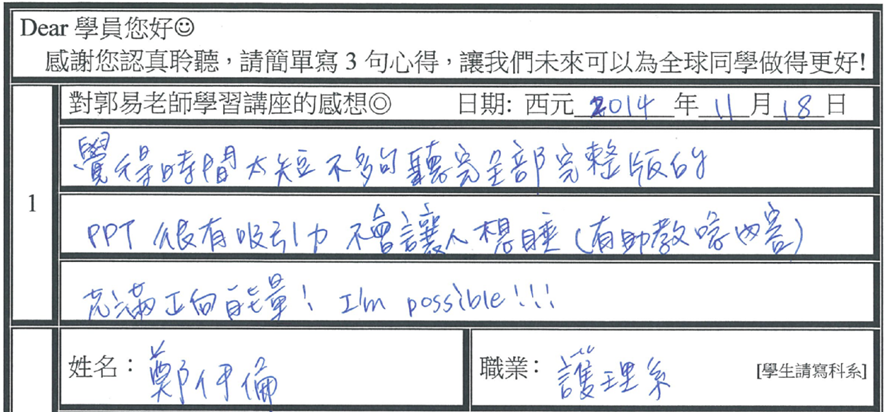 Dear 學員您好☺
感謝您認真聆聽，請簡單寫 3 句心得，讓我們未來可以為全球同學做得更好!
1
對郭易老師學習講座的感想◎ 日期: 西元 2014 年 11 月 18 日
覺得時間太短不夠聽完全部完整版的
PPT 很有吸引力 不會讓人想睡 (有助教學內容)
充滿正向能量! I'm possible!!!
姓名： 鄭伊倫 職業： 護理系 [學生請寫科系]